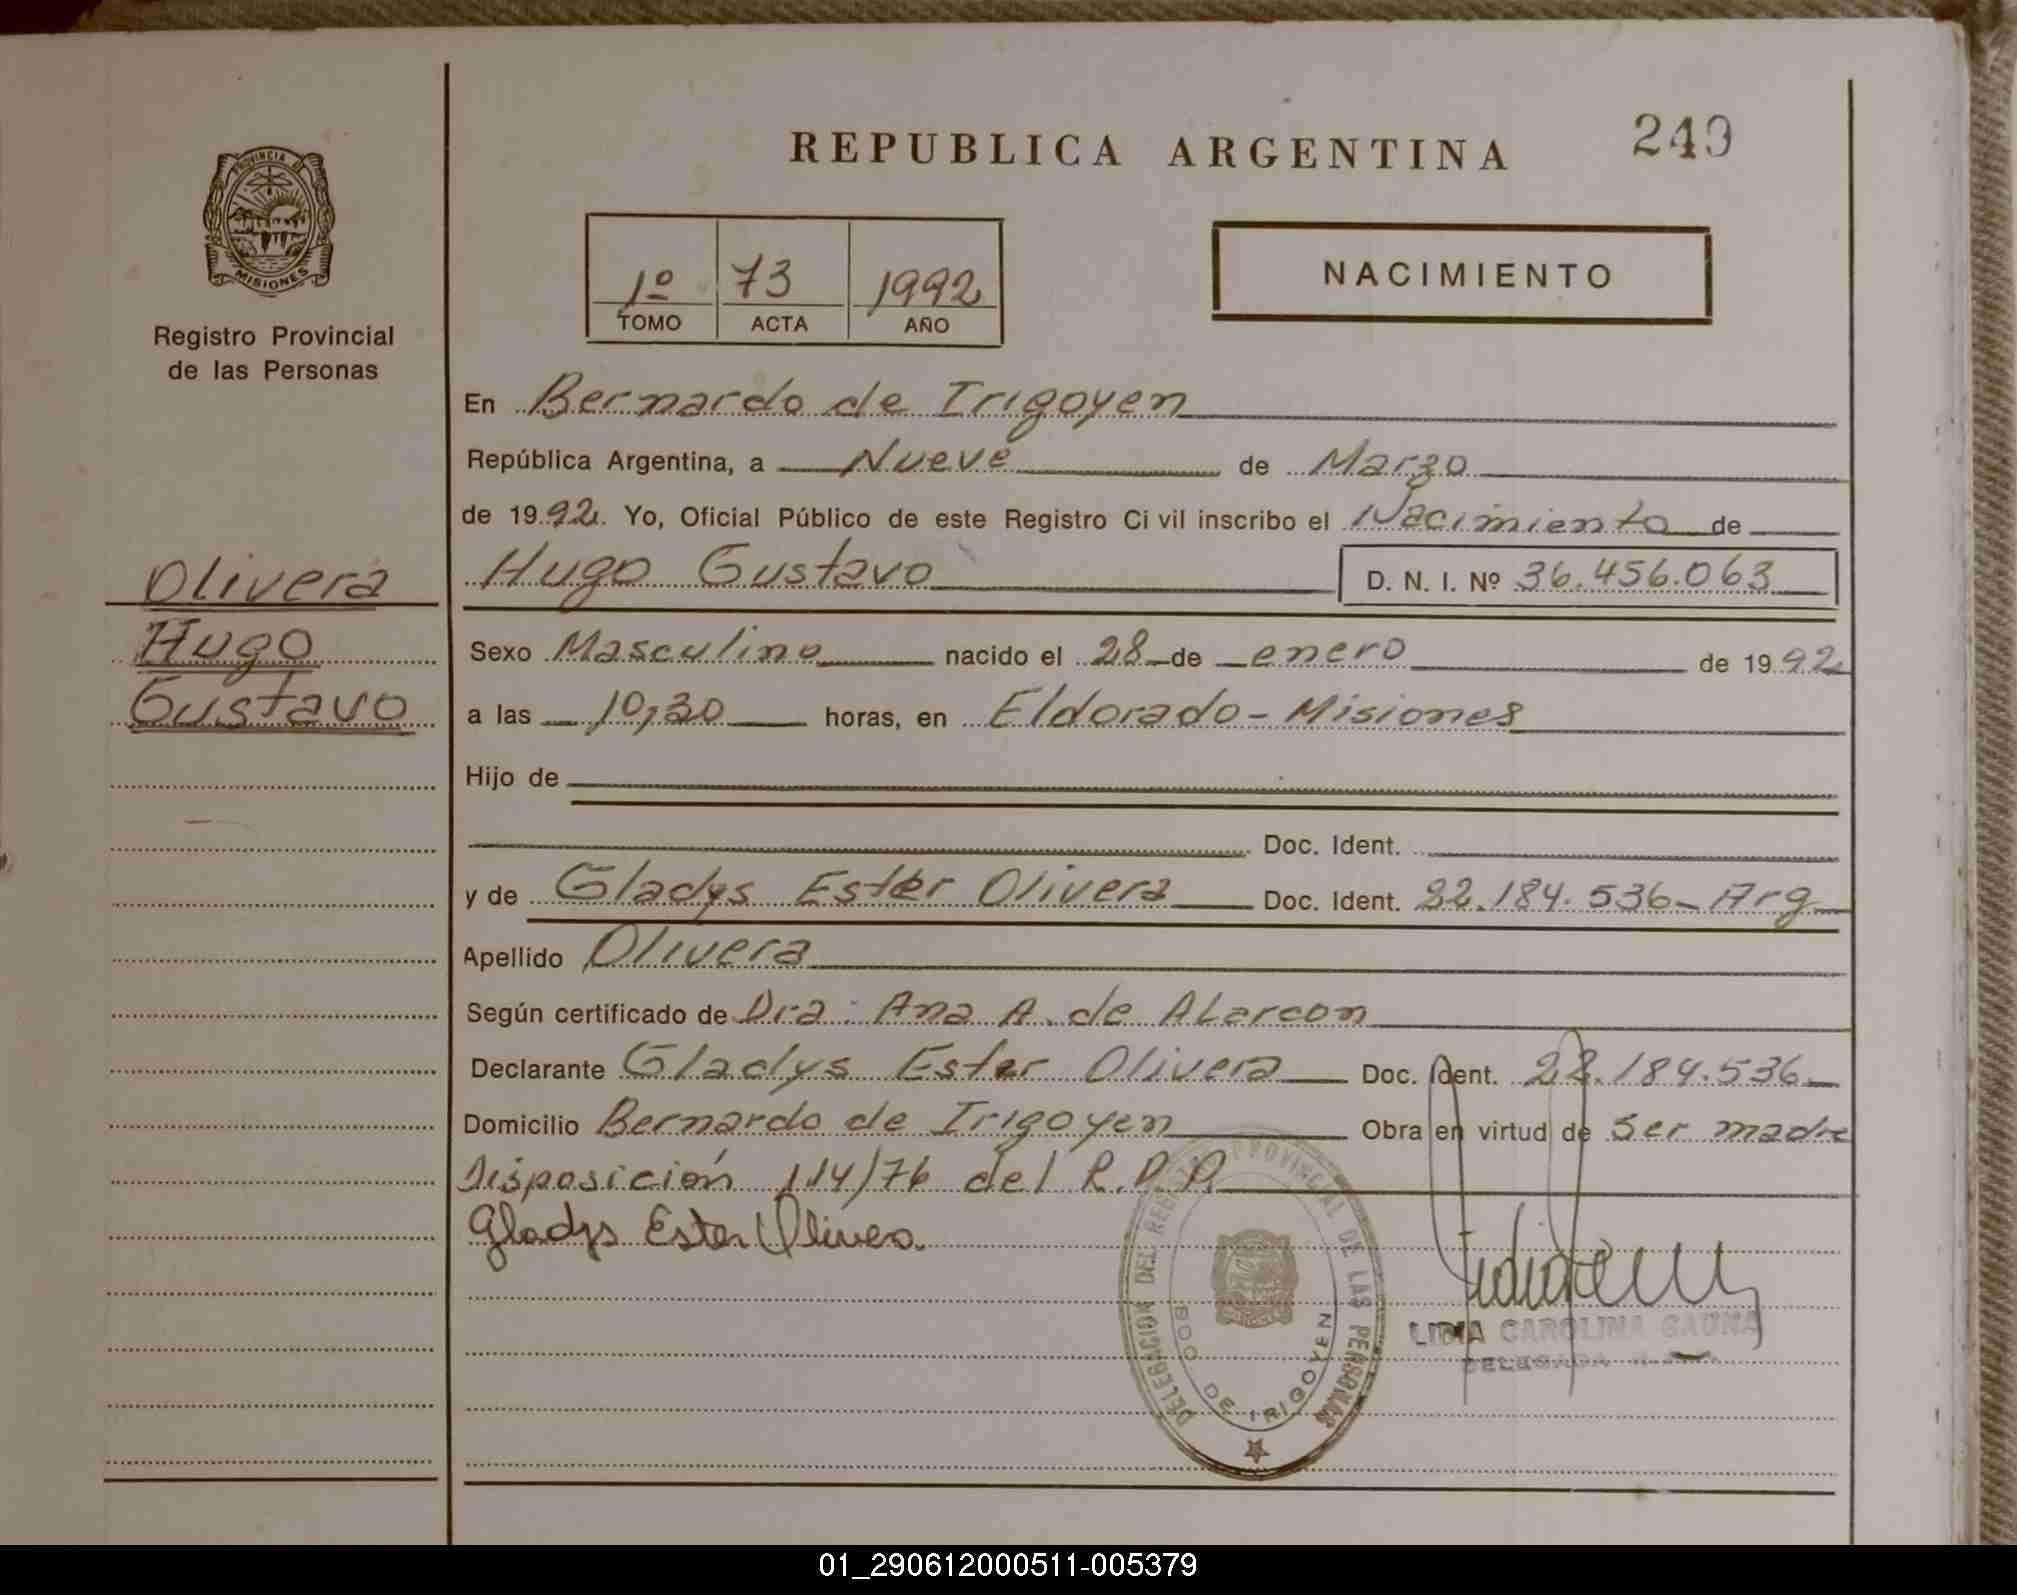 REPUBLICA ARGENTINA
249
PROVINCIA DE
MISIONES
Registro Provincial
de las Personas
1º 73 1992
TOMO ACTA AÑO
NACIMIENTO
En Bernardo de Irigoyen
República Argentina, a Nueve de Marzo
de 1992. Yo, Oficial Público de este Registro Ci vil inscribo el Nacimiento de
Hugo Gustavo D. N. I. Nº 36.456.063
Olivera
Hugo
Gustavo
Sexo Masculino nacido el 28 de enero de 1992
a las 10,30 horas, en Eldorado - Misiones
Hijo de
Doc. Ident.
y de Gladys Ester Olivera Doc. Ident. 22.184.536 - Arg
Apellido Olivera
Según certificado de Dra: Ana A. de Alarcon
Declarante Gladys Ester Olivera Doc. Ident. 22.184.536
Domicilio Bernardo de Irigoyen Obra en virtud de Ser madre
Disposición 114/76 del R.P.P.
Gladys Ester Olivera.
DELEGACION DEL REGISTRO PROVINCIAL DE LAS PERSONAS
BDO DE IRIGOYEN
LIDIA CAROLINA GAUNA
DELEGADA
01_290612000511-005379